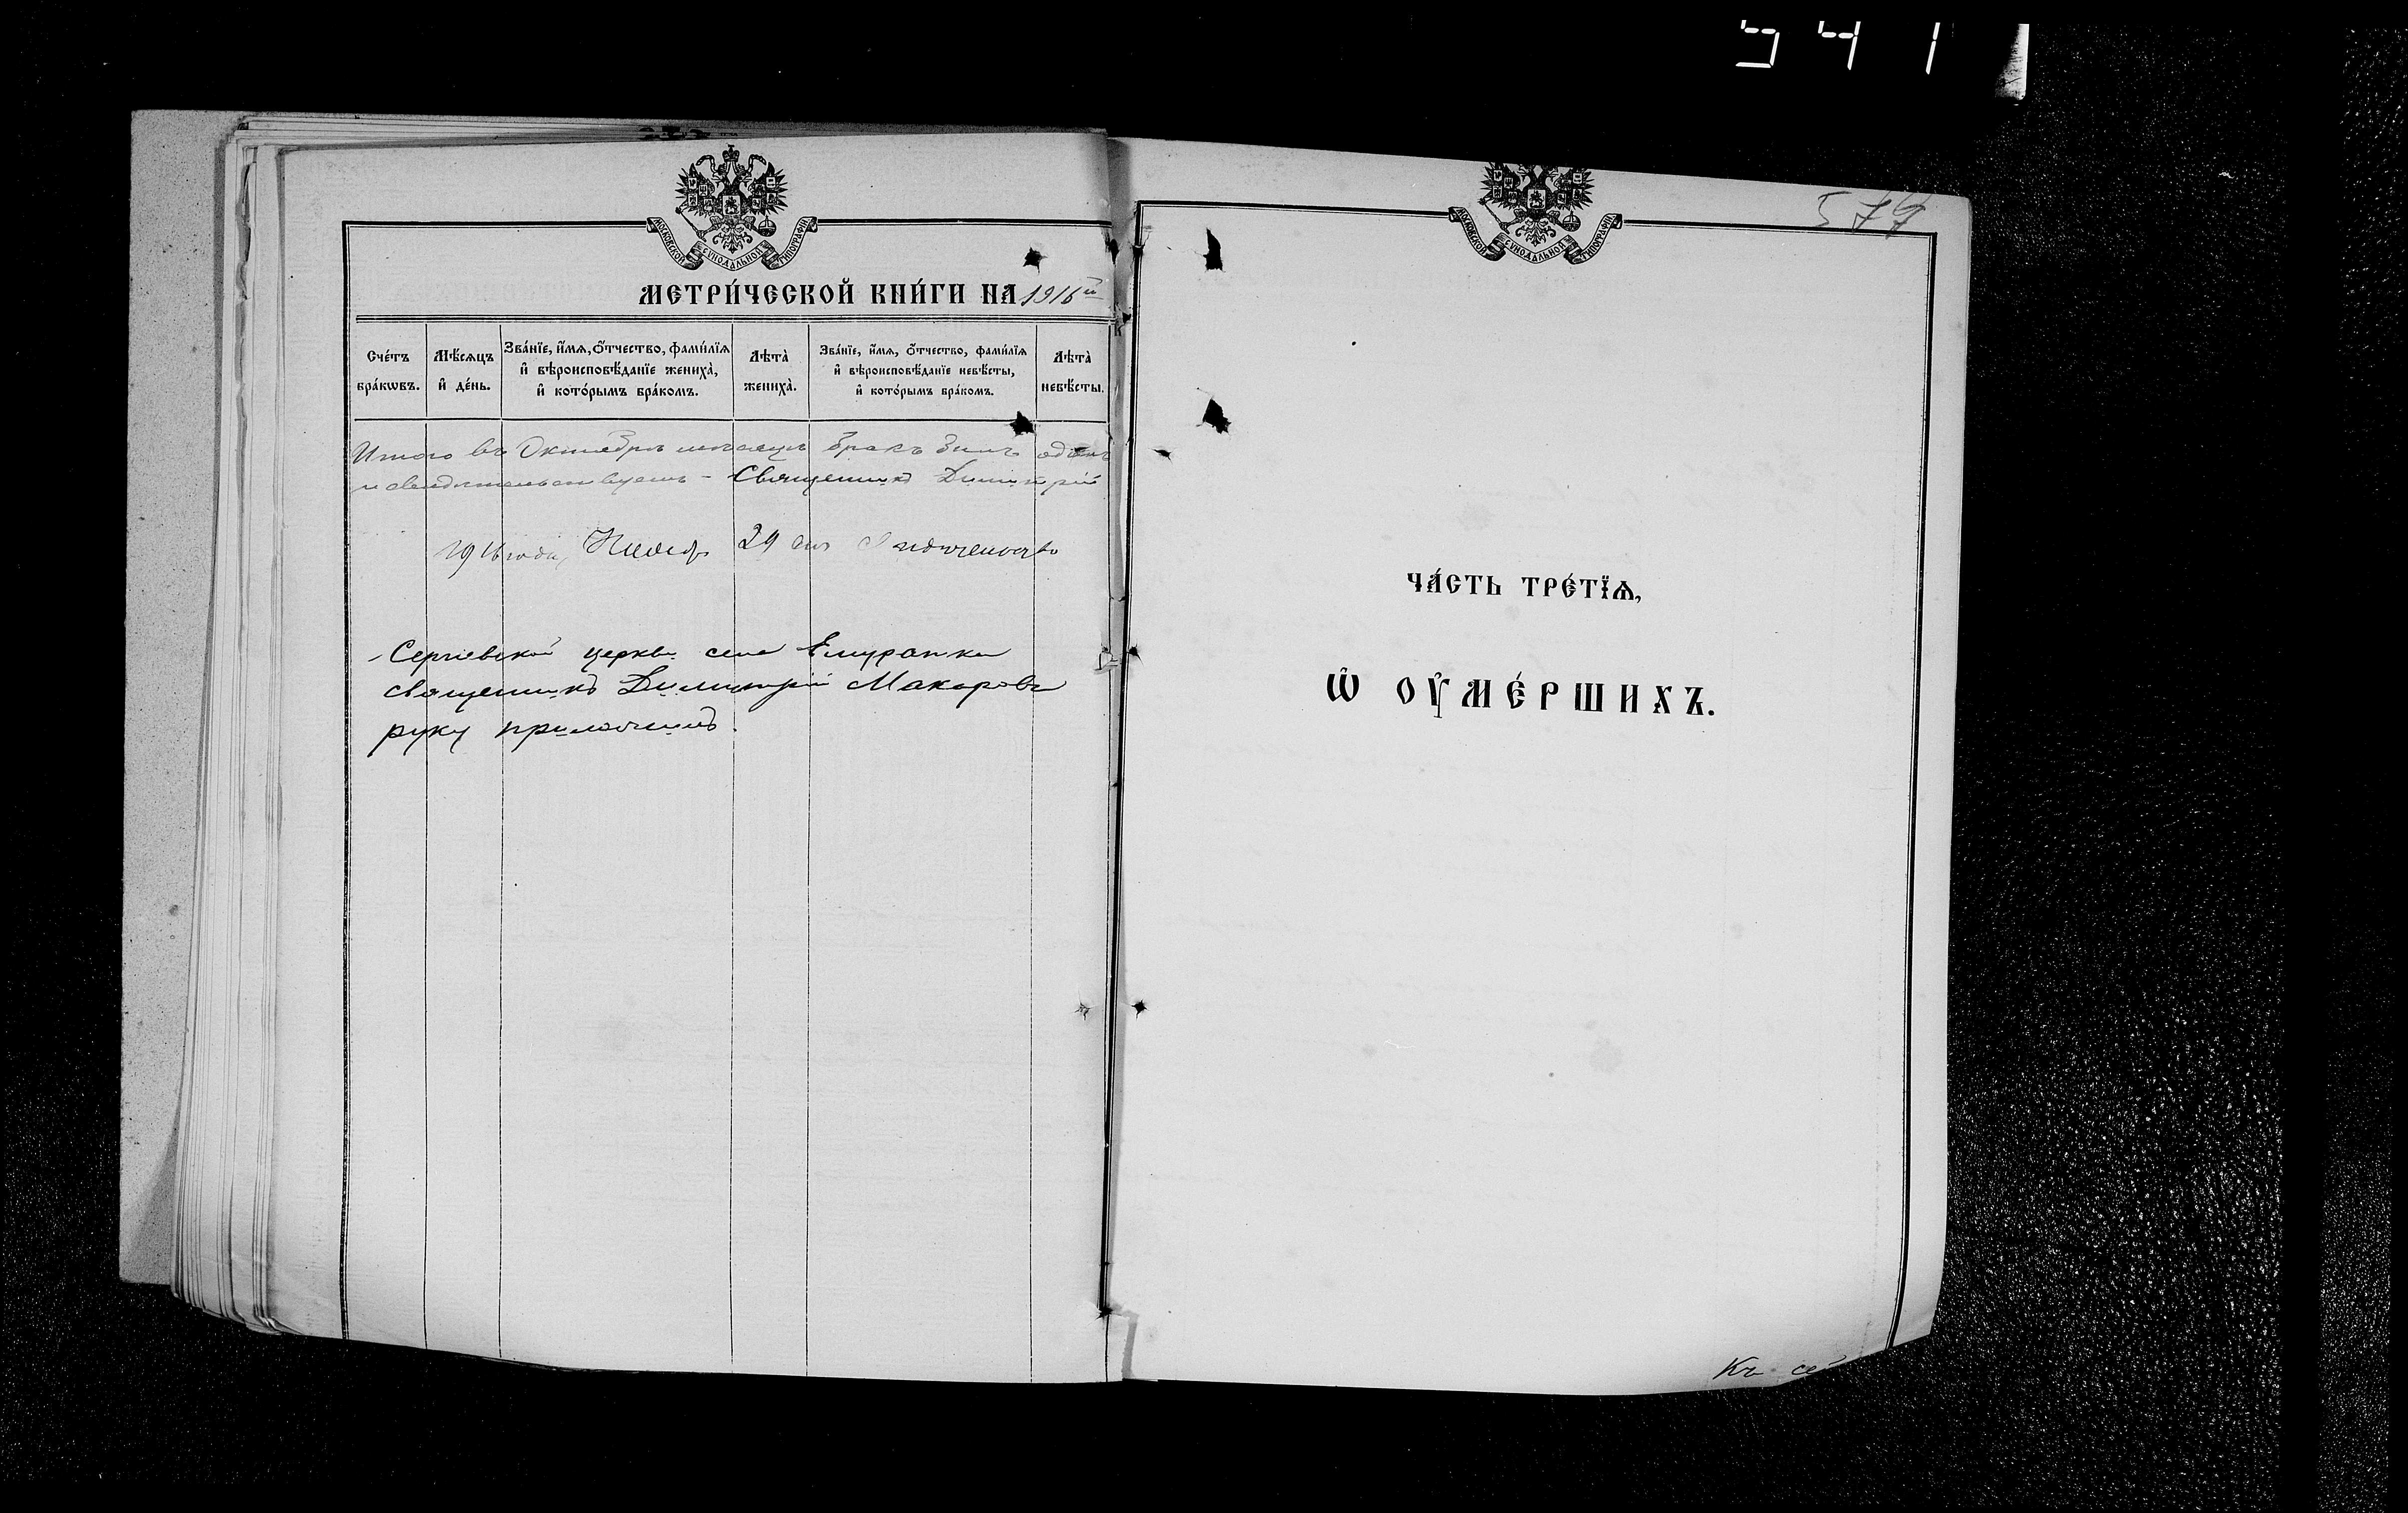 541
МОСКОВСКОЙ СУНОДАЛЬНОЙ ТИПОГРАФІИ
МЕТРИ́ЧЕСКОЙ КНИ́ГИ НА 1916й
Сче́тъ бра́кѡвъ.
Мѣ́сѧцъ и҆ де́нь.
Зва́нїе, и҆́мѧ, ѻ҆́тчество, фами́лїѧ и҆ вѣроисповѣ́данїе жениха̀, и҆ кото́рымъ бра́комъ.
Лѣта̀ жениха̀.
Зва́нїе, и҆́мѧ, ѻ҆́тчество, фами́лїѧ и҆ вѣроисповѣ́данїе невѣ́сты, и҆ кото́рымъ бра́комъ.
Лѣта̀ невѣ́сты.
Итого въ Октябрѣ мѣсяцѣ бракъ былъ одинъ
и свидѣтельствуетъ - Священникъ Димитрій
1916 года, 29
Сергіевской церкви села
священникъ Димитрій Макаровъ
руку приложилъ.
МОСКОВСКОЙ СУНОДАЛЬНОЙ ТИПОГРАФІИ
ЧА́СТЬ ТРЕ́ТЇѦ,
Ѡ҆ ОУ҆МЕ́РШИХЪ.
Къ сей